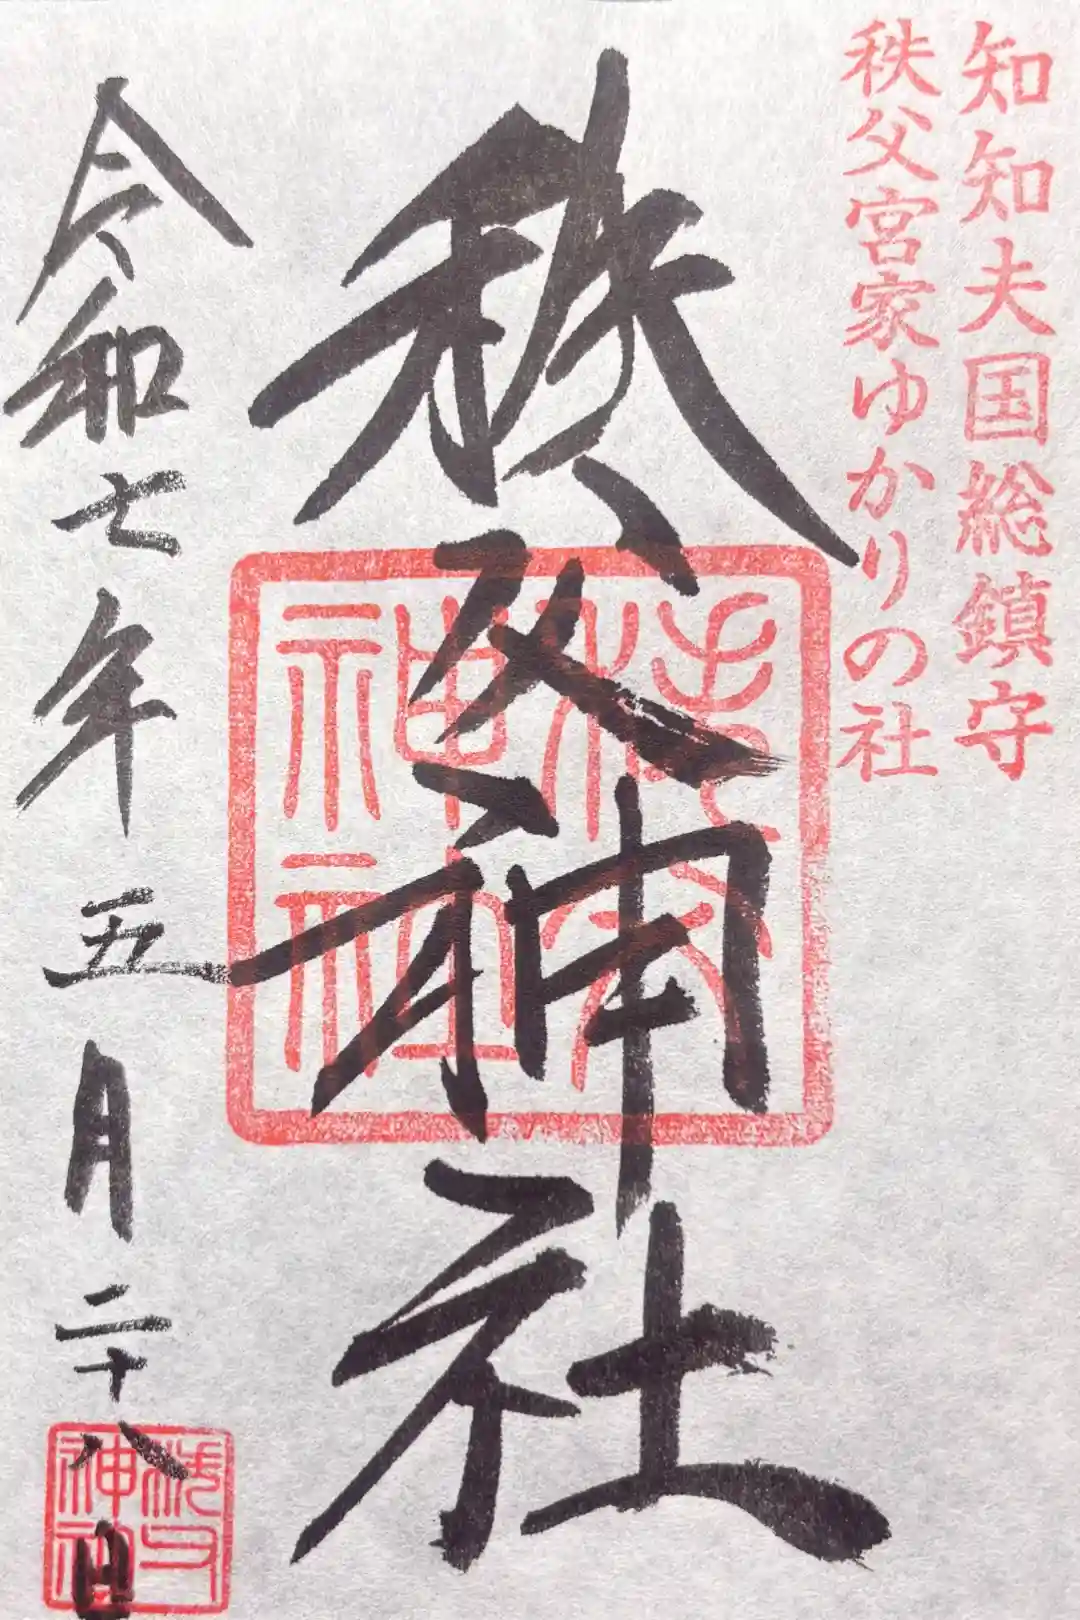 知知夫国総鎮守
秩父宮家ゆかりの社
秩父神社
秩父神社
令和七年五月二十八日
秩父神社